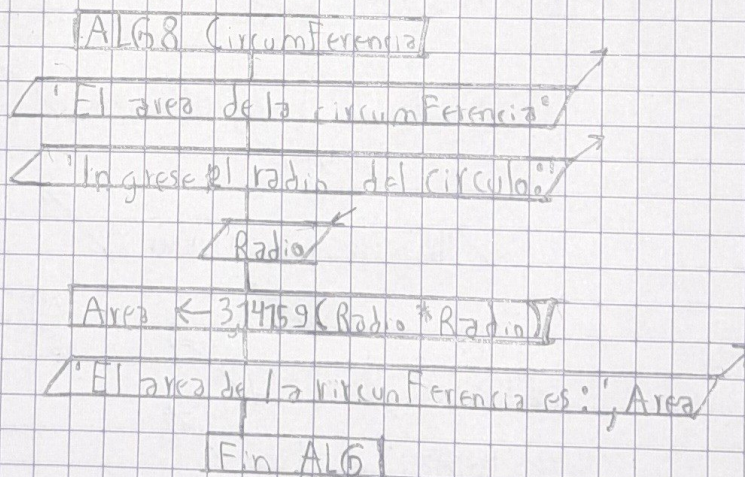 ALG8 Circumferencia
'El area de la circumferencia'
'Ingrese el radio del circulo:'
Radio
Area ← 3,14159(Radio * Radio)
'El area de la circunferencia es:', Area
Fin ALG